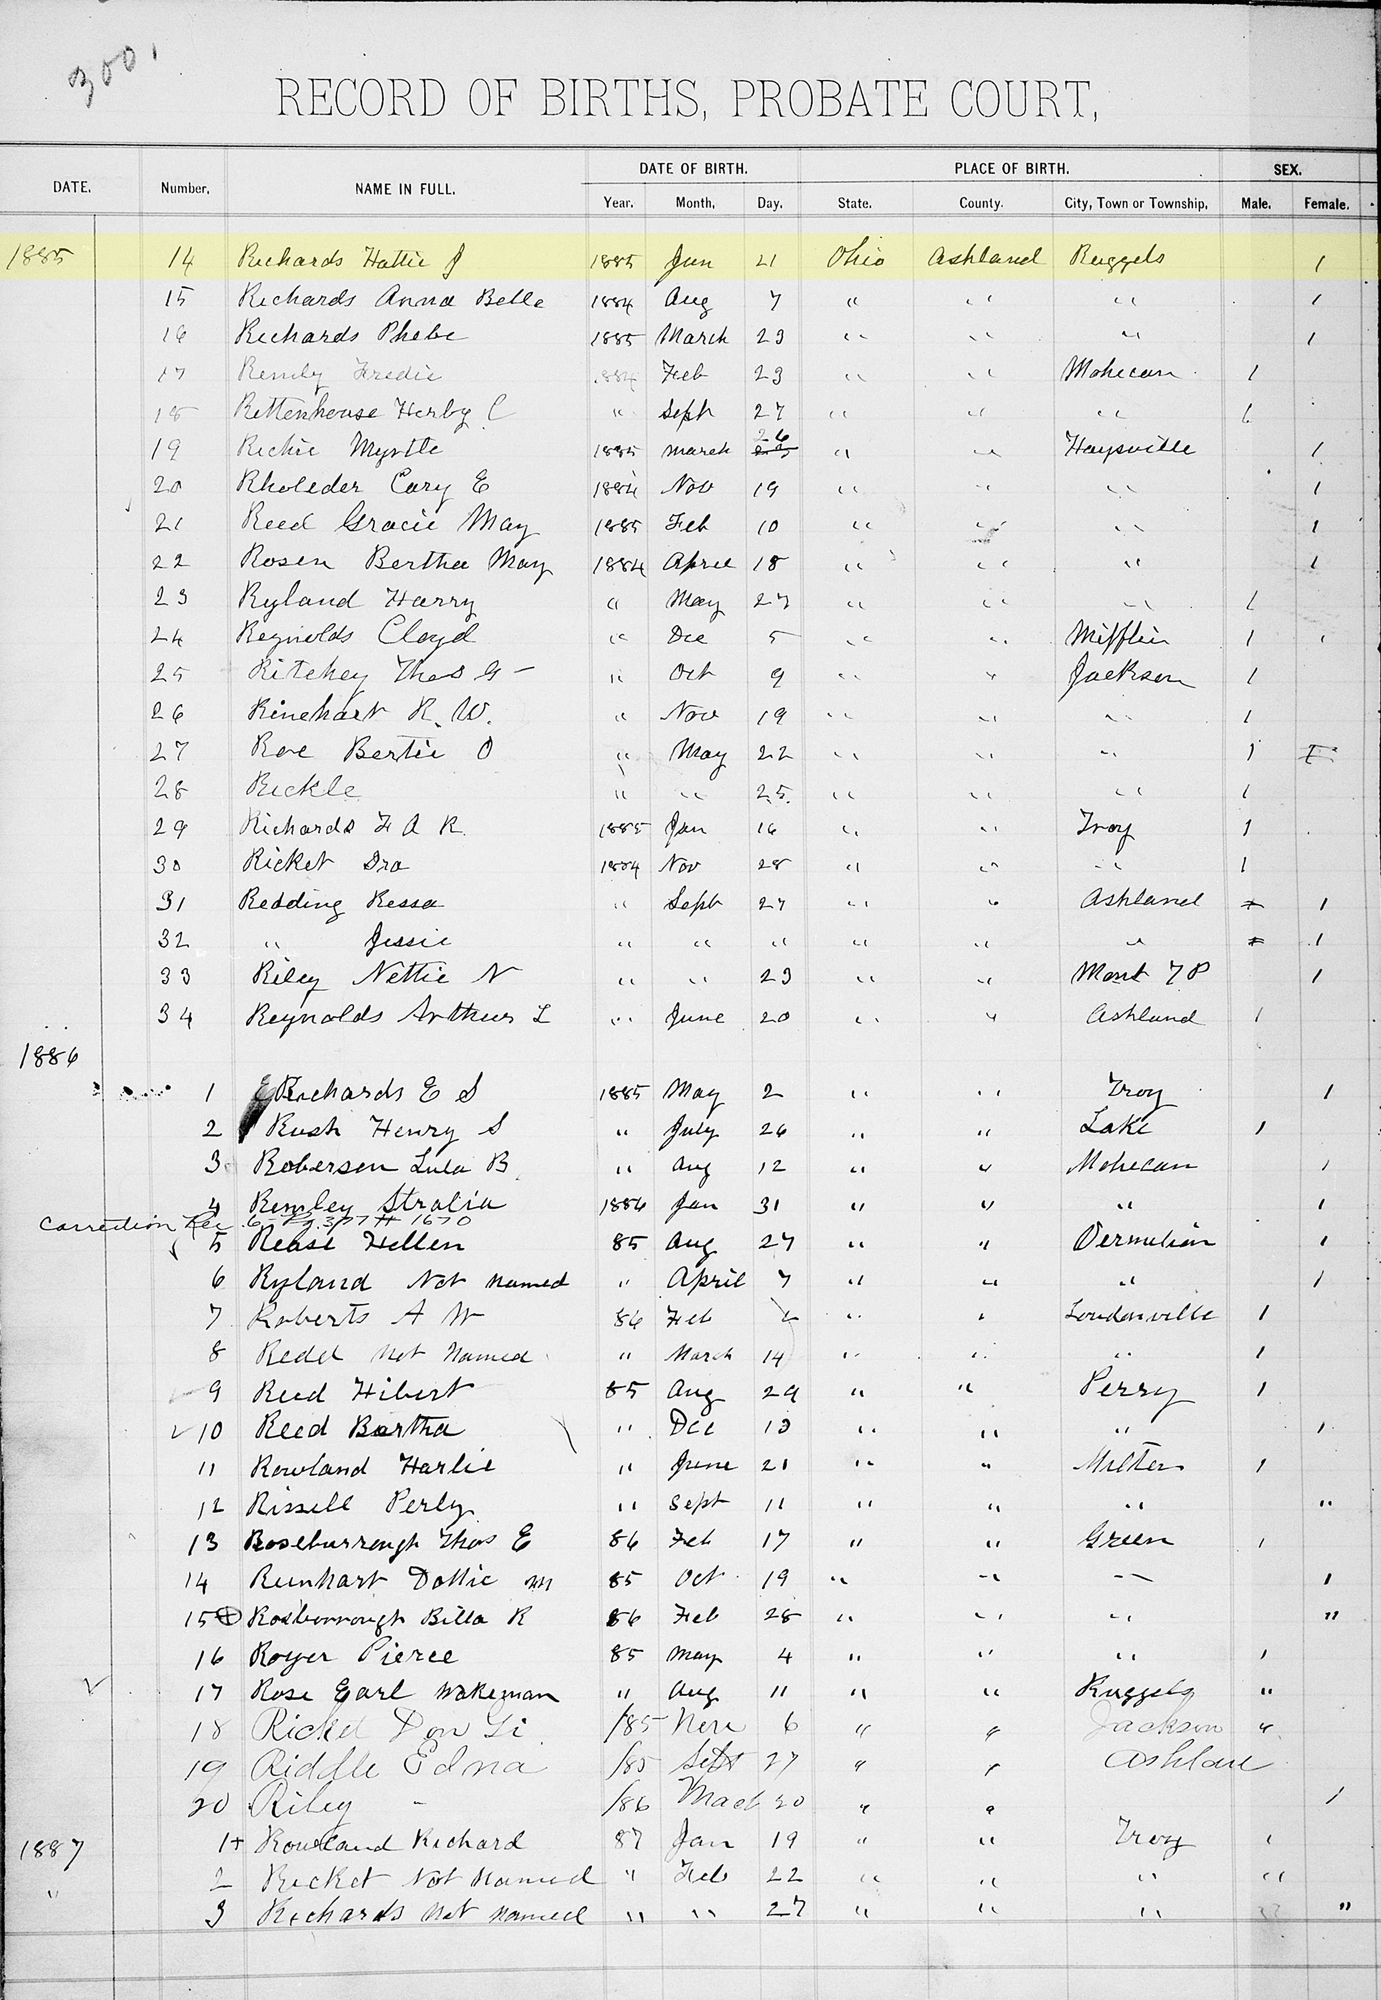 300.
RECORD OF BIRTHS, PROBATE COURT,
DATE. Number. NAME IN FULL. DATE OF BIRTH. PLACE OF BIRTH. SEX.
Year. Month, Day. State. County. City, Town or Township, Male. Female.
1885 14 Richards Hattie J 1885 Jun 21 Ohio Ashland Ruggels 1
15 Richards Anna Belle 1884 Aug 7 " " " 1
16 Richards Phebe 1885 March 23 " " " 1
17 Remly Fredie 1884 Feb 23 " " Mohecan 1
18 Rettenhouse Herby C " Sept 27 " " " 1
19 Richie Myrtle 1885 march 26 " " Haysville 1
20 Rholeder Cary E 1884 Nov 19 " " " 1
21 Reed Gracie May 1885 Feb 10 " " " 1
22 Rosen Bertha May 1884 April 18 " " " 1
23 Ryland Harry " May 27 " " " 1
24 Reynolds Cloyd " Dec 5 " " Mifflin 1
25 Ritchey Thos G - " Oct 9 " " Jackson 1
26 Rinehart R. W. " Nov 19 " " " 1
27 Roe Bertie O " May 22 " " " 1
28 Rickle " " 25 " " " 1
29 Richards F A R. 1885 Jan 16 " " Troy 1
30 Ricket Ira 1884 Nov 28 " " " 1
31 Redding Ressa " Sept 27 " " Ashland 1
32 " Jessie " " " " " " 1
33 Riley Nettie N " " 23 " " Mont T P 1
34 Reynolds Arthur L " June 20 " " Ashland 1
1886
1 Richards E S 1885 May 2 " " Troy 1
2 Rush Henry S " July 26 " " Lake 1
3 Roberson Lula B " Aug 12 " " Mohecan 1
4 Remley Stralia 1886 Jan 31 " " " 1
Correction Rec 6 - Pg. 377 # 1670
5 Rease Hellen 85 Aug 27 " " Vermilion 1
6 Ryland Not named " April 7 " " " 1
7 Roberts A W 86 Feb 2 " " Loudonville 1
8 Redd Not Named " March 14 " " " 1
9 Reed Hibert 85 Aug 29 " " Perry 1
10 Reed Bertha " Dec 13 " " " 1
11 Rowland Harlie " June 21 " " Milton 1
12 Rissell Perly " Sept 11 " " " "
13 Roseburrough Thos E 86 Feb 17 " " Green 1
14 Reinhart Dottie M 85 Oct 19 " " " 1
15 Rosborrough Billa R 86 Feb 28 " " " "
16 Royer Pierce 85 May 4 " " " 1
17 Rose Earl Wakeman " Aug 11 " " Ruggels "
18 Ricket Don /85 Nov 6 " " Jackson "
19 Riddle Edna /85 Sept 27 " " Ashland
20 Riley - /86 Mach 20 " " 1
1887 1+ Rowland Richard 87 Jan 19 " " Troy 1
" 2 Ricket Not Named " Feb 22 " " " "
3 Richards Not named " " 27 " " " "